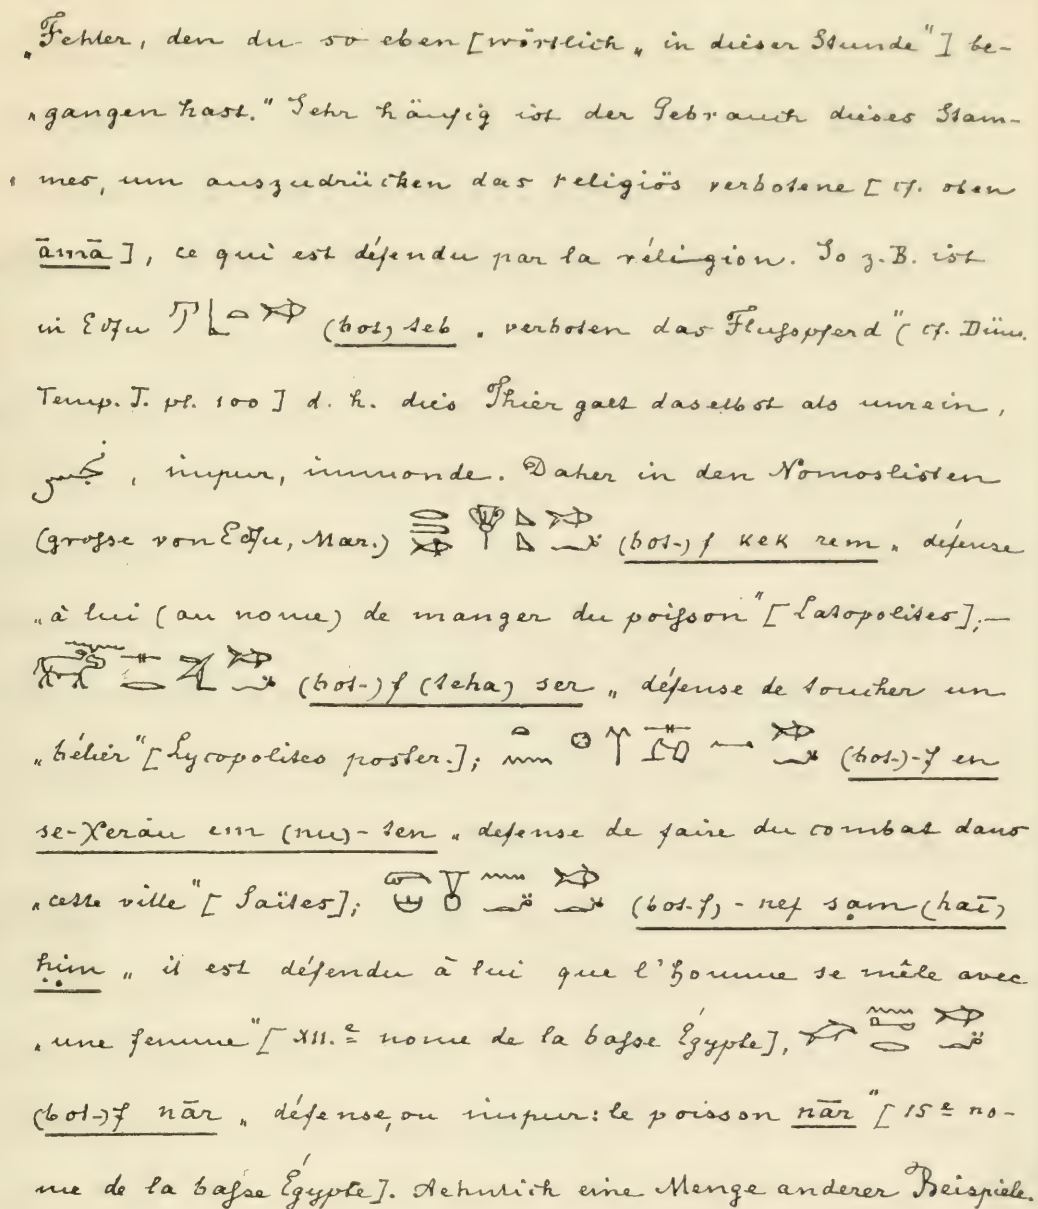 „Fehler, den du so eben [wörtlich „in dieser Stunde"] be-
„gangen hast." Sehr häufig ist der Gebrauch dieses Stam-
mes, um auszudrücken das religiös verbotene [cf. oben
āmā], ce qui est défendu par la réligion. So z.B. ist
in Edfu (bot) teb „verboten das Flußpferd" (cf. Düm.
Temp. I. pl. 100] d. h. dies Thier galt daselbst als unrein,
نجس, impur, immonde. Daher in den Nomoslisten
(große von Edfu, Mar.) (bot-) f kek rem „défense
„à lui (au nome) de manger du poißon" [Latopolites];—
(bot-) f (teha) ser „défense de toucher un
„bélier" [Lycopolites poster.]; (bot-)-f en
se-χerāu em (nu)-ten „défense de faire du combat dans
„cette ville" [Saïtes]; (bot-f)-nef sam (hat)
him „il est défendu à lui que l'homme se mêle avec
„une femme" [XII.e nome de la baße Égypte], 
(bot-)f nār „défense, ou impur: le poisson nār" [15e no-
me de la baße Égypte]. Aehnlich eine Menge anderer Beispiele.